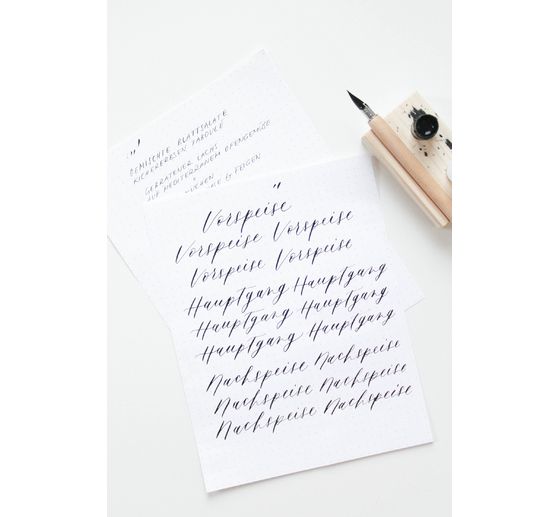 GEMISCHTE BLATTSALATE
KICHERERBSEN TABOULÉ
GEBRATENER LACHS
AUF MEDITERRANEM OFENGEMÜSE
KUCHEN
& FEIGEN
Vorspeise
Vorspeise Vorspeise
Vorspeise Vorspeise
Hauptgang Hauptgang
Hauptgang Hauptgang
Hauptgang Hauptgang
Nachspeise Nachspeise
Nachspeise Nachspeise
Nachspeise Nachspeise